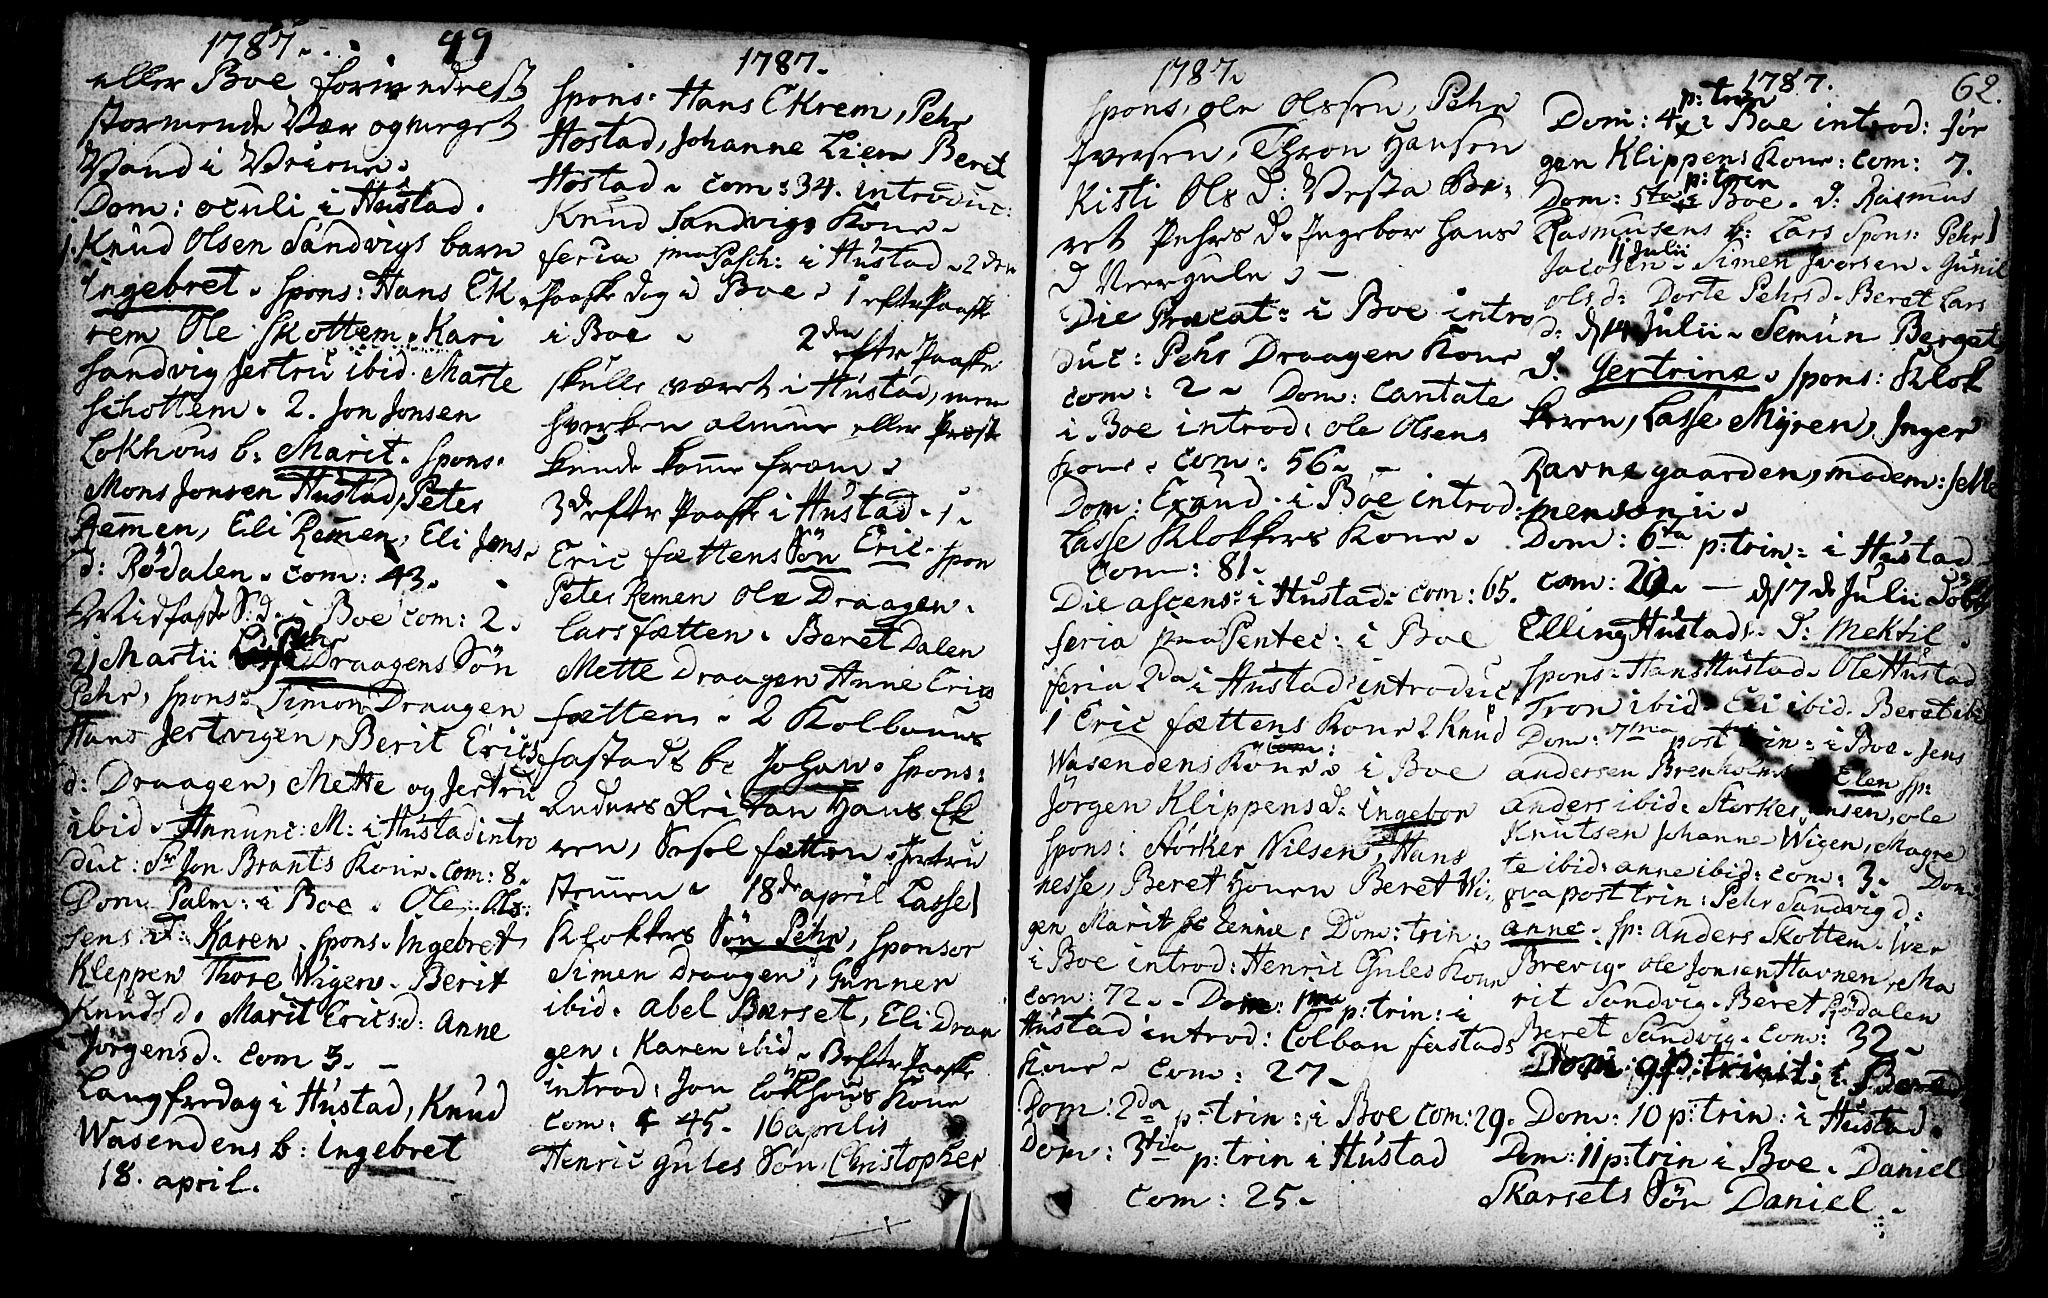 1787. . . . 99
eller Boe
stormende Vær og meget
Vand i
Dom: oculi i Hústad.
1. Knúd Olsen Sandvigs barn
Ingebret. Spons: Hans Ek
rem Ole Skottem. Kari
Sandvig Jertrú ibid. Marte
Schottem. 2. Jon Jonsen
Lokhous b: Marit. Spons.
Mons Jonsen Hústad, Peter
Remen, Eli Remen, Eli Jons
d: Rödalen. com: 43.
Midfaste S:d. i Boe com: 2.
21 Martii Pehr Draagens Sön
Pehr, spons: Simon Draagen
Hans Jertvigen, Berit Erics
d: Draagen, Mette og Jertru
ibid. Annunc: M: i Hústad intro
duc: Sr Jon Brants Kone. com: 8.
Dom Palm: i Boe. Ole Ols
sens d: Karen. spons. Ingebret
Kleppen Thore Wigen. Berit
Knudsd. Marit Ericsd: Anne
Jörgensd. com 3. —
Langfredag i Hústad, Knúd
Wasendens b: Ingebret
18. april.
1787.
spons: Hans Ekrem, Pehr
Hostad, Johanne Liem Beret
Hostad. com: 34. introduc:
Knúd Sandvigs Kone.
feria pma Pasch: i Hústad. 2den
Paaske dag i Boe. 1 efter Paaske
i Boe. 2den efter Paaske
skulle været i Hústad, men
hverken almue eller Præst
kunde komme frem.
3de efter Paaske i Hústad. 1.
Eric fættens Sön Eric. spon
Peter Remen Ole Draagen.
Lars fætten. Beret Dalen
Mette Draagen Anne Erics
fættens. 2 Kolbanus
fastads b: Johan. spons:
Anders Kristan Hans Ek
ren, Sesel fætten. Jertru
Struen. 18de april Lasse
Klokkers Sön Pehr, sponsor
Simen Draagen, Gunner
ibid. Abel Bærset, Eli Draa
gen, Karen ibid. 3 efter Paaske
introd: Jon Lökhous Kone
com: 45. 16 aprilis
Henric Gules Sön Christopher
1787.
spons. ole olssen, Pehr
Iversen, Thron Hansen
Kisti Ols d: Be
ret Pehrs d. Ingebor Hans
d Neergule. —
Die Precat: i Boe intro
duc: Pehr Draagen Kone
com: 2. Dom: Cantate
i Boe introd: Ole Olsens
kone. com: 56. —
Dom: Exaud. i Boe introd:
Lasse Klokkers Kone.
com: 81.
Die ascens: i Hústad. com: 65.
feria pma Pentec: i Boe
feria 2da i Hústad introduc
1 Eric fættens Kone 2 Knúd
Wasendens Kone. i Boe
Jörgen Klippens d: Ingebor
spons: Störker Nilsen, Hans
nesse, Beret Houen Beret Wi
gen Marit Dom: trin.
i Boe introd: Henric Gules Kone
com: 72. Dom: 1ma p: trin: i
Hústad introd: Colban fastads
Kone. com: 27.
Dom: 2da p: trin: i Boe com: 29.
Dom: 3tia p: trin i Hústad
com: 25.
1787. 62.
Dom: 4 p: trin i Boe introd: Jör
gen Klippens Kone: com: 7.
Dom: 5ta p: trin i Boe. d: Rasmus
Rasmusens b: Lars Spons: Pehr
Jacobsen 11 Julii Simen Iversen. Gunil
ols d: Dorte Pehrsd. Beret Lars
d: d 14 Julii. Semun Bergets
d. Gertrine. spons: Klok
keren, Lasse Myren, Inger
Ravnegaarden, madem: Jette
Dom: 6ta p: trin: i Hústad
com: 20. — d 17 de Julii döbt
Elling Hústads d: Mektil.
spons: Hans Hústad. Ole Hústad
Tron ibid. Eli ibid. Beret ibid
Dom: 7ma post trin: i Boe. Jens
andersen Brenholms Elen sp:
anders ibid. Storker Jensen, ole
Knutsen Johanne Wigen, Magre
te ibid: anne ibid: com: 3. Dom
8va post trin: Pehr Sandvig d:
anne. sp: anders Skottem. Iver
Brevig. Ole Jonsen Havnen, Ma
rit Sandvig. Beret Rödalen
Beret Sandvig. com: 32.
Dom: 9 p: trinit: i
Dom: 10 p: trin: i Hústad.
Dom: 11 p: trin i Boe. Daniel
Skarsets Sön Daniel.